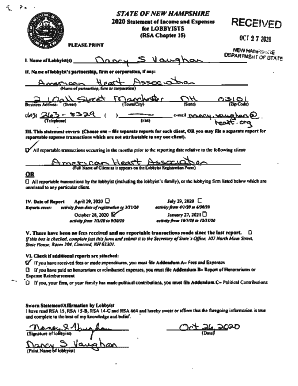 STATE OF NEW HAMPSHIRE
2020 Statement of Income and Expenses
for LOBBYISTS
(RSA Chapter 15)
PLEASE PRINT
RECEIVED
OCT 27 2020
NEW HAMPSHIRE
DEPARTMENT OF STATE
I. Name of Lobbyist(s) Nancy S Vaughan
II. Name of lobbyist's partnership, firm or corporation, if any:
American Heart Association
(Name of partnership, firm or corporation)
2 Wall Street Manchester NH 03101
Business Address: (Street) (Town/City) (State) (Zip Code)
(Telephone) e-mail nancy.vaughan@
heart.org
III. This statement covers: (Choose one – file separate reports for each client, OR you may file a separate report for
reportable expense transactions which are not attributable to any one client).
All reportable transactions occurring in the months prior to the reporting date relative to the following client:
American Heart Association
(Full Name of Client as it appears on the Lobbyist Registration Form)
OR
All reportable transactions by the lobbyist (including the lobbyist's family), or the lobbying firm listed below which are
unrelated to any particular client.
IV. Date of Report April 29, 2020 July 29, 2020
Reports cover: activity from date of registration to 3/31/20 activity from 4/1/20 to 6/30/20
October 28, 2020 January 27, 2021
activity from 7/1/20 to 9/30/20 activity from 10/1/20 to 12/31/20
V. There have been no fees received and no reportable transactions made since the last report.
If this box is checked, complete just this form and submit it to the Secretary of State's Office, 107 North Main Street,
State House, Room 204, Concord, NH 03301.
VI. Check if additional reports are attached:
If you have received fees or made expenditures, you must file Addendum A– Fees and Expenses
If you have paid an honorarium or reimbursed expenses, you must file Addendum B– Report of Honorariums or
Expense Reimbursement
If you, your firm, or your family has made political contributions, you must file Addendum C– Political Contributions
Sworn Statement/Affirmation by Lobbyist
I have read RSA 15, RSA 15-B, RSA 14-C and RSA 664 and hereby swear or affirm that the foregoing information is true
and complete to the best of my knowledge and belief.
Nancy S Vaughan Oct 26, 2020
(Signature of lobbyist) (Date)
Nancy S Vaughan
(Print Name of lobbyist)